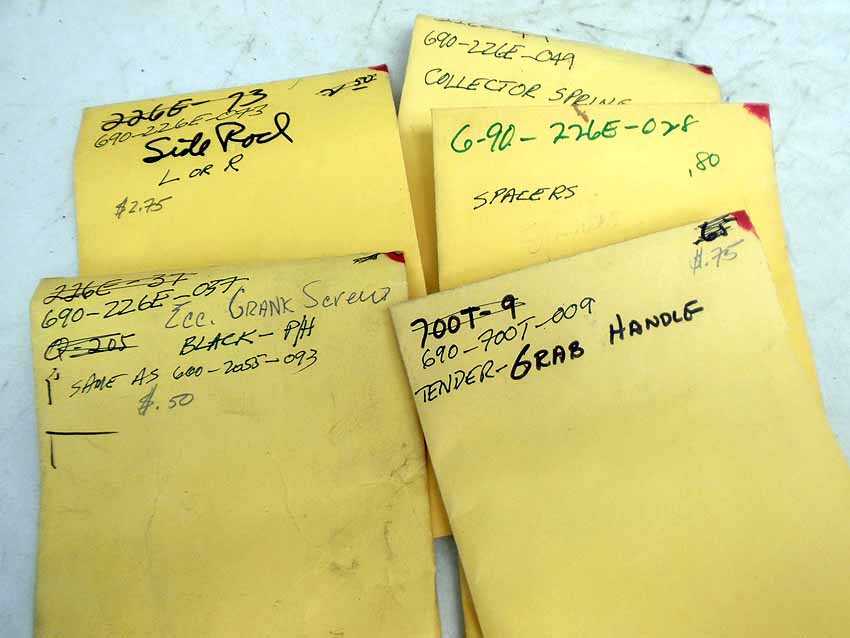 226E-73
690-226E-073
Side Rod
L OR R
$2.75
690-226E-049
COLLECTOR SPRING
6-90-226E-028
.80
SPACERS
226E-37
690-226E-037
Ecc. CRANK Screw
Q-205
BLACK-P/H
SAME AS 600-2055-093
$.50
$.75
700T-9
690-700T-009
TENDER-GRAB HANDLE